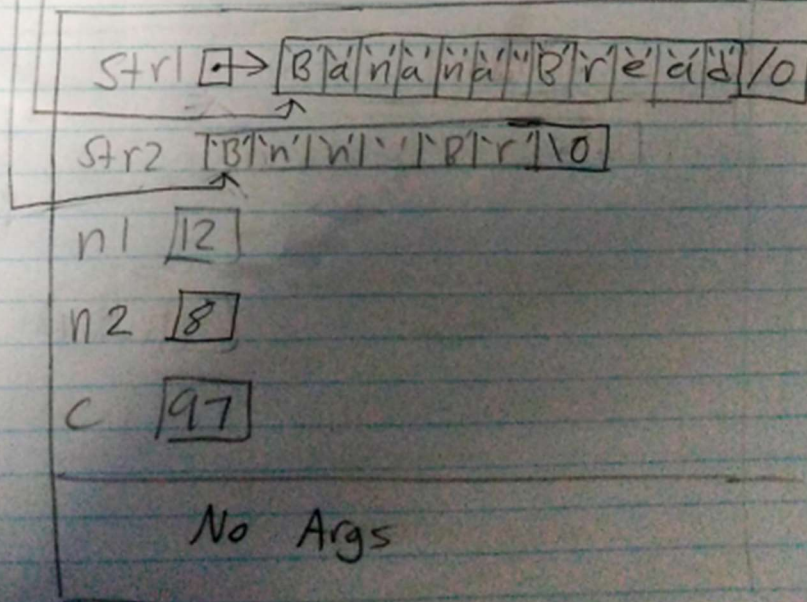 Str1 'B' 'a' 'n' 'a' 'n' 'a' ' ' 'B' 'r' 'e' 'a' 'd' /0
Str2 'B' 'n' 'n' ' ' 'B' 'r' \0
n1 12
n2 8
c 97
No Args